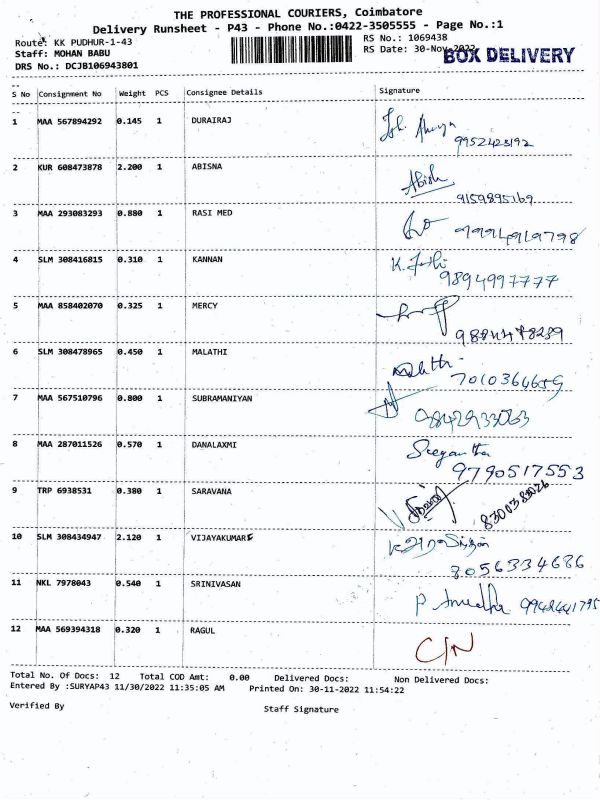 THE PROFESSIONAL COURIERS, Coimbatore
Delivery Runsheet - P43 - Phone No.:0422-3505555 - Page No.:1
Route: KK PUDHUR-1-43
RS No.: 1069438
Staff: MOHAN BABU
RS Date: 30-Nov-2022
BOX DELIVERY
DRS No.: DCJB106943801
S No Consignment No Weight PCS Consignee Details Signature
1 MAA 567894292 0.145 1 DURAIRAJ
9952423192
2 KUR 608473878 2.200 1 ABISNA Abish
9159895169
3 MAA 293083293 0.880 1 RASI MED
4 SLM 308416815 0.310 1 KANNAN
9894997777
5 MAA 858402070 0.325 1 MERCY
6 SLM 308478965 0.450 1 MALATHI
7010364659
7 MAA 567510796 0.800 1 SUBRAMANIYAN
8 MAA 287011526 0.570 1 DANALAXMI
9790517553
9 TRP 6938531 0.380 1 SARAVANA
10 SLM 308434947 2.120 1 VIJAYAKUMAR
8056334686
11 NKL 7978043 0.540 1 SRINIVASAN
12 MAA 569394318 0.320 1 RAGUL C/N
Total No. Of Docs: 12 Total COD Amt: 0.00 Delivered Docs: Non Delivered Docs:
Entered By :SURYAP43 11/30/2022 11:35:05 AM Printed On: 30-11-2022 11:54:22
Verified By Staff Signature